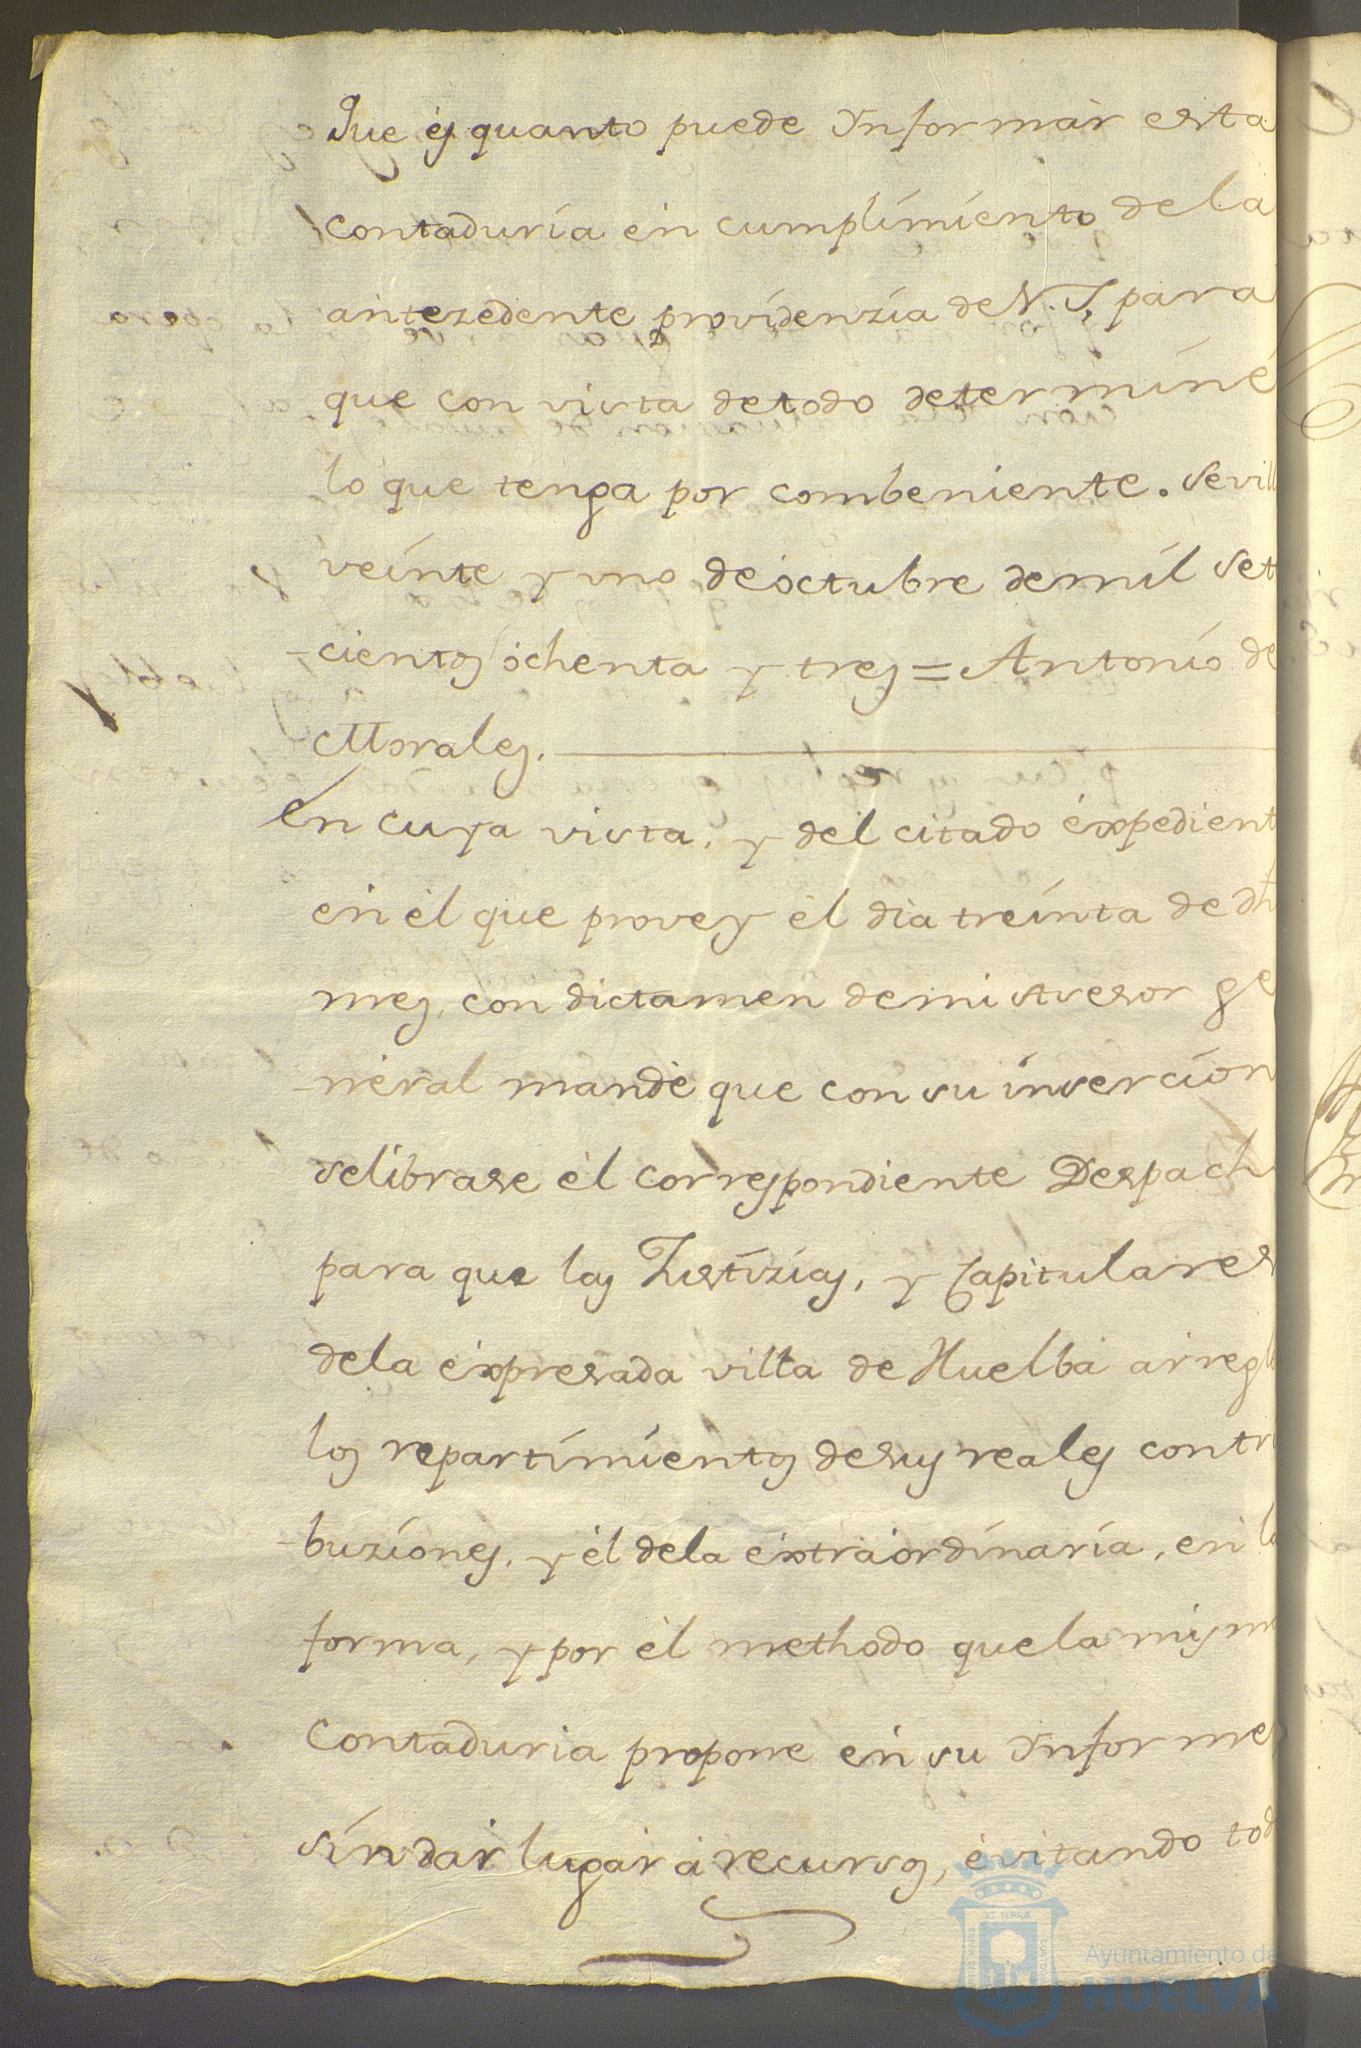 Que es quanto puede Ynformar esta
contaduría en cumplimiento de la
antezedente providenzia de V. S, para
que con vista de todo determine
lo que tenga por combeniente. Sevill
veinte y uno de octubre de mil set
cientos ochenta y tres = Antonio de
Morales.
En cuya vista, y del citado expedient
en él que provey él dia treinta de dh
mes, con dictamen de mi Asesor ge
neral mandé que con su insercion
se librase él correspondiente Despach
para que las Justizias, y Capitulares
de la expresada villa de Huelba arregl
los repartimientos de sus reales contri
buziones, y él de la extraordinaria, en la
forma, y por él methodo que la mism
Contaduria propone en su Informe
sin dar lugar á recursos, évitando tod
Ayuntamiento de
HUELVA